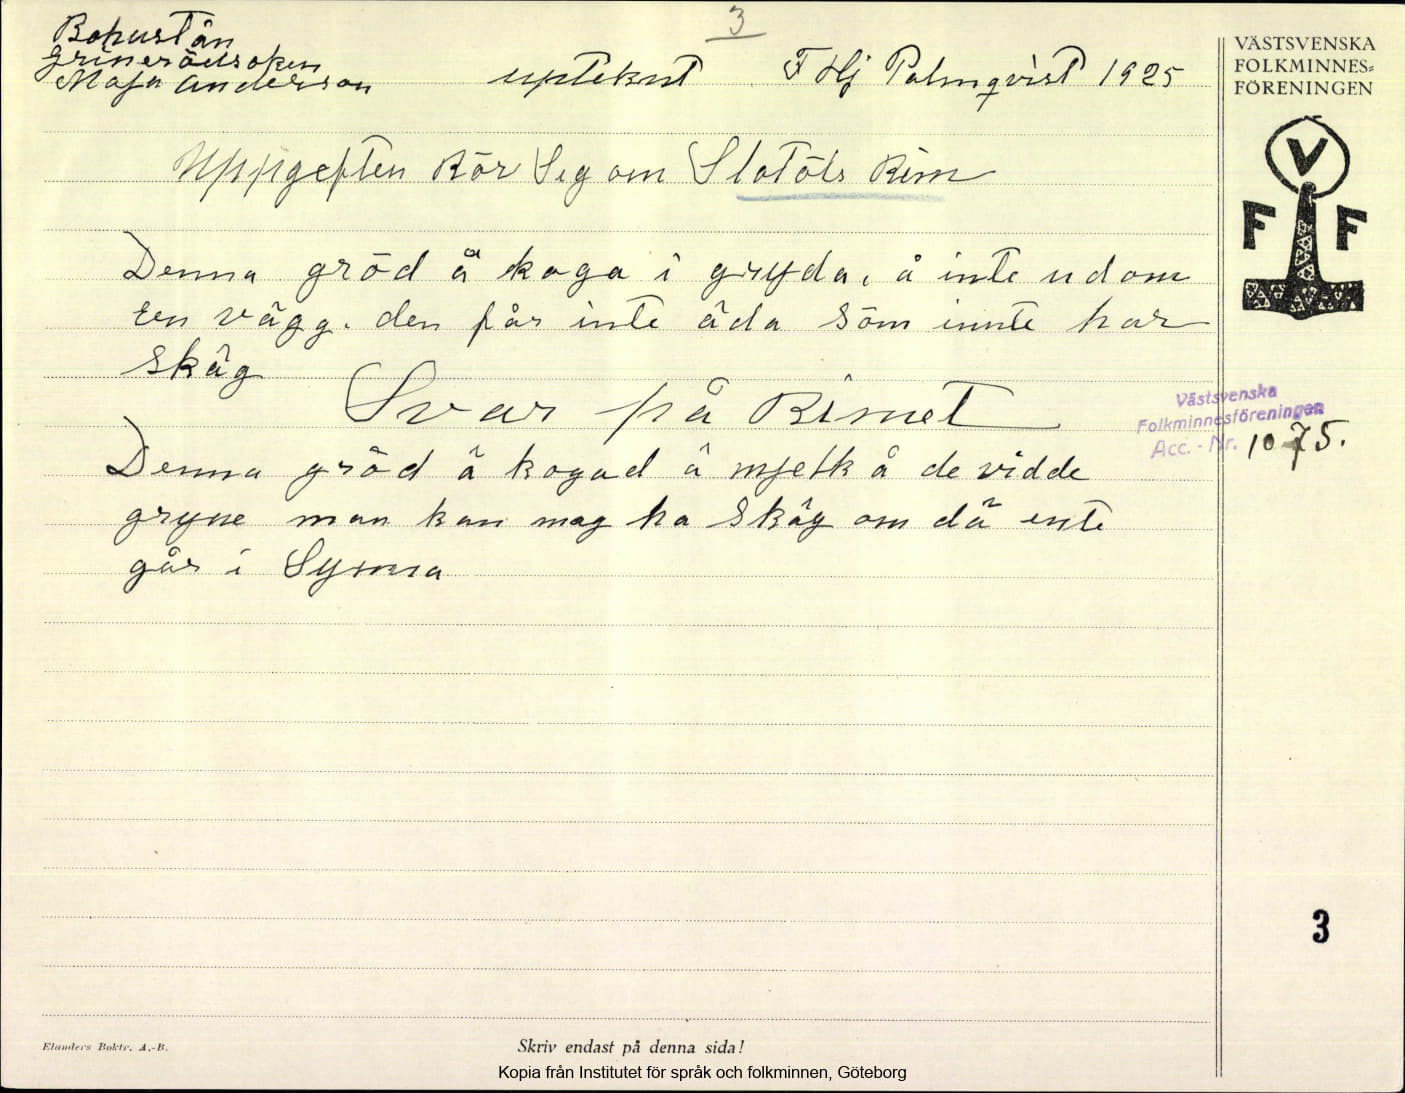 3
Bohuslän
Grinerödsoken
Maja anderson
upteknt F Hj Palmqvist 1925
VÄSTSVENSKA
FOLKMINNES=
FÖRENINGEN
V
F F
Uppgeften Rör Sig om Slotöls Rim
Denna gröd å koga i gryda, å inte ud om
een vägg. den får inte äda söm innte har
skäg
Svar på Rimet
Västsvenska
Folkminnesföreningen
Acc. - Nr. 1075.
Denna gröd å kogad å mjelk å de vidde
gryne man kan mag ha skäg om dä ente
går i Synna
3
Elanders Boktr. A.-B.
Skriv endast på denna sida!
Kopia från Institutet för språk och folkminnen, Göteborg